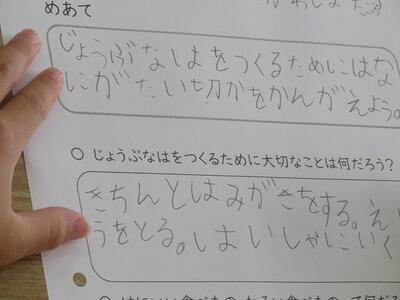 めあて
じょうぶなはをつくるためにはな
にがたい切かをかんがえよう。
○ じょうぶなはをつくるために大切なことは何だろう?
きちんとはみがきをする。え
うをとる。しはいしゃにいく